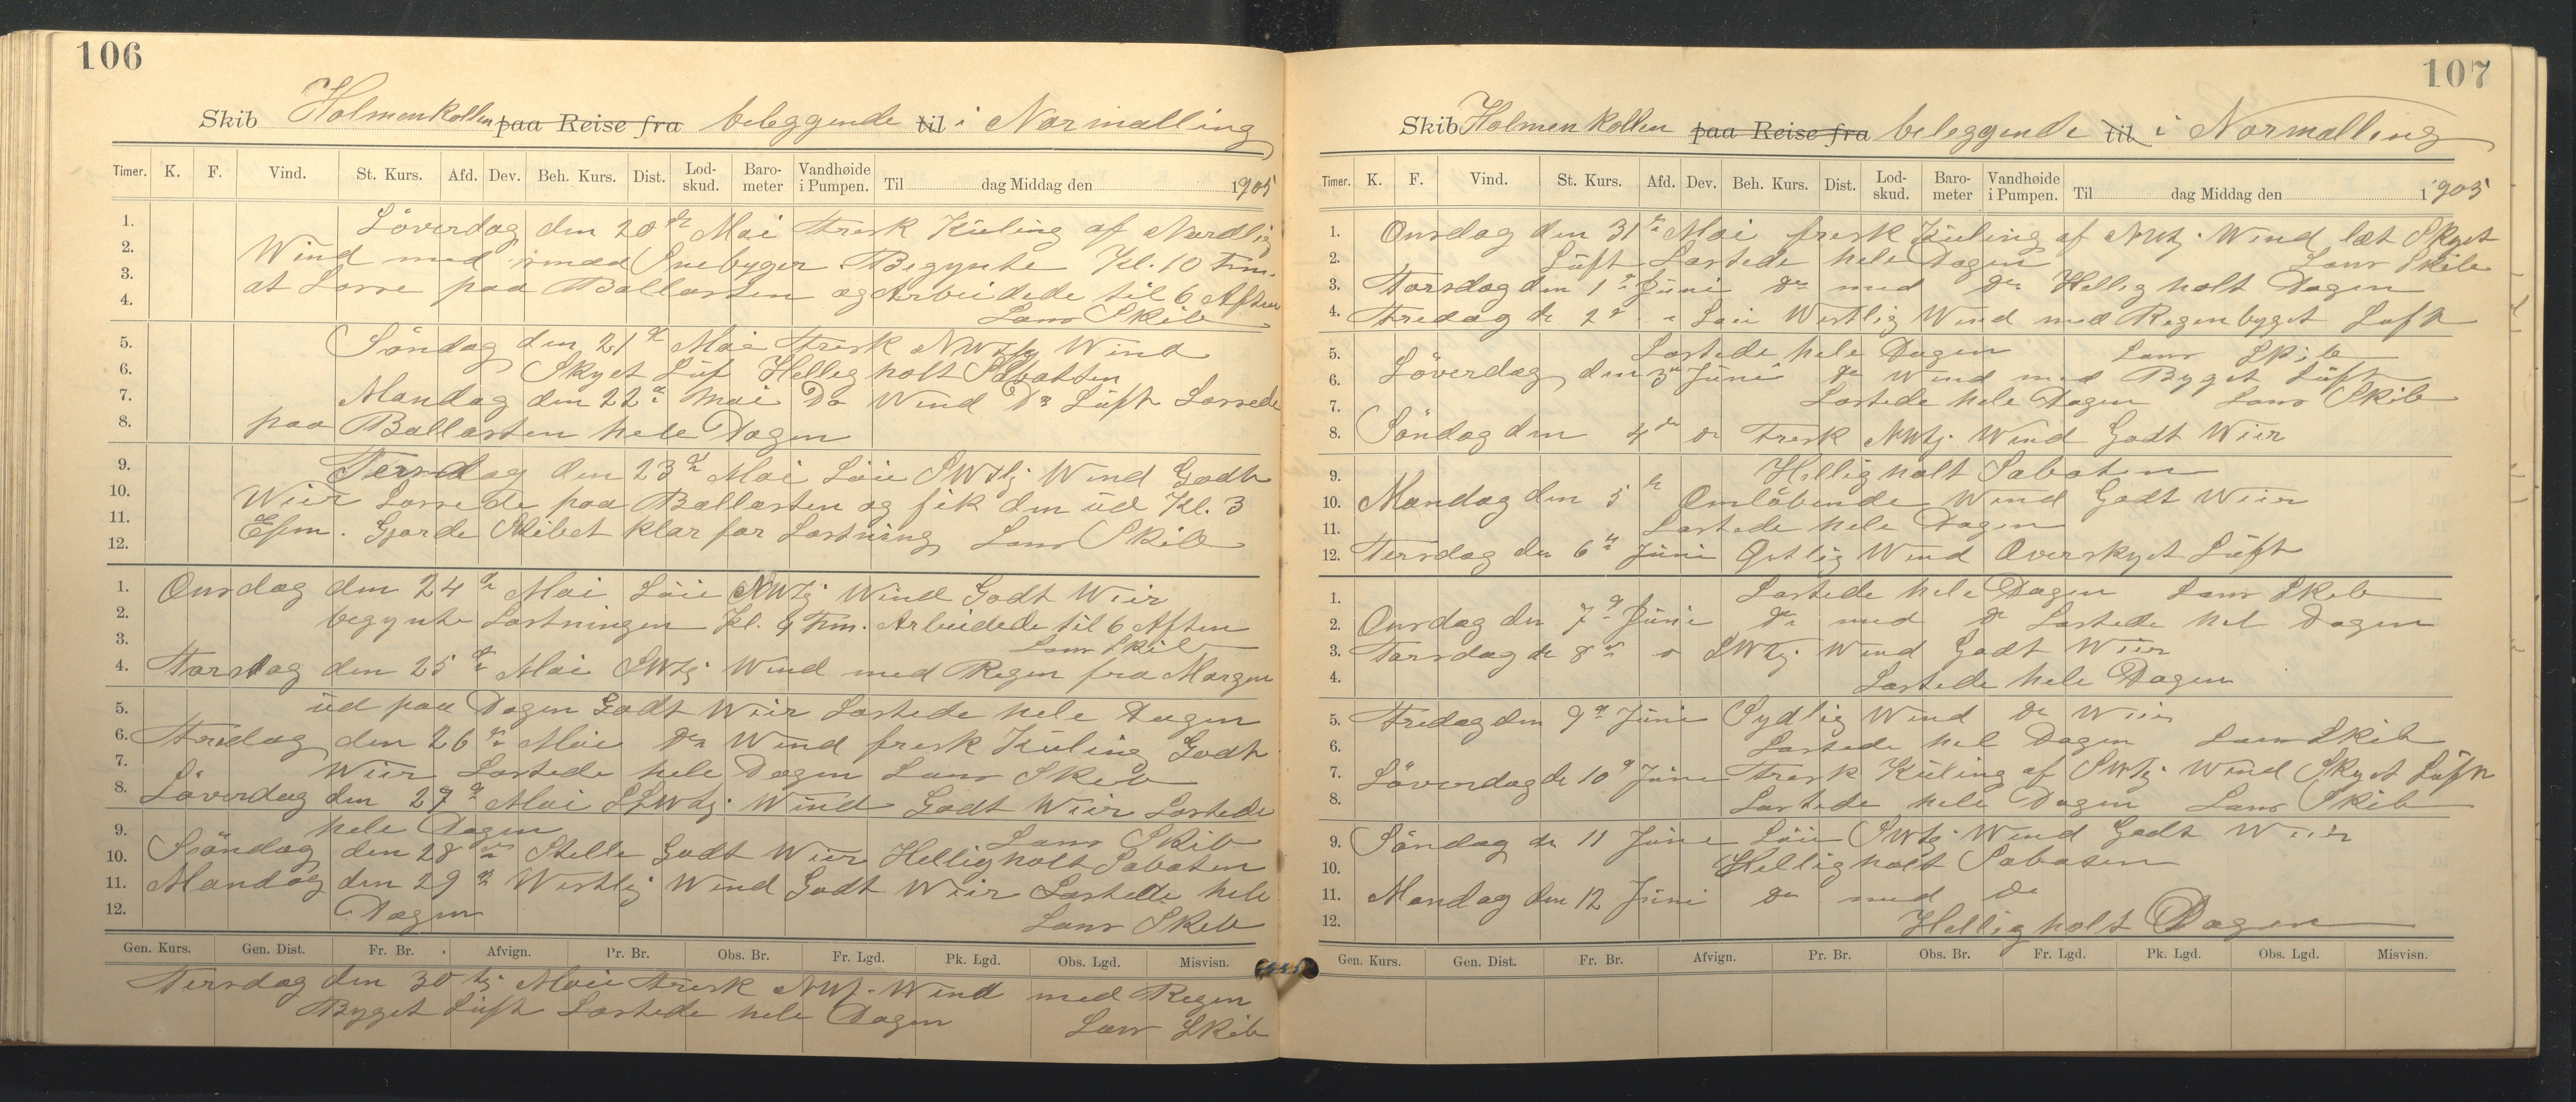 106
Skib Holmenkollen paa Reise fra beleggende til i Normalling
Timer. K. F. Vind. St. Kurs. Afd. Dev. Beh. Kurs. Dist. Lod-skud. Baro-meter Vandhøide i Pumpen. Til dag Middag den 1905
1. Löverdag den 20de Mai Fresk Kuling af Nordlig
2. Wind med Snebyger. Begynte Kl. 10 Fm.
3. at Losse paa Ballasten og Arbeidede til 6 Aften
4. Lens Skib
5. Söndag den 21de Mai Fresk NWtlg Wind
6. Skyet Luf Hellig holt Sabatten
7. Mandag den 22de Mai Do Wind Do Luft Lossede
8. paa Ballasten hele Dagen
9. Tersdag den 23de Mai Löie SWtlj Wind Godt
10. Wier Lossede paa Ballasten og fik den ud Kl. 3
11. Efm. Gjorde Skibet klar for Lastning Lens Skib
12.
1. Onsdag den 24de Mai Löie NWtj Wind Godt Wier
2. begynte Lastningen Kl. 9 Fm. Arbeidede til 6 Aften
3. Lens Skib
4. Torsdag den 25de Mai SWtj Wind med Regen fra Morgen
5. ud paa Dagen Godt Wier Lastede hele Dagen
6. Fredag den 26de Mai Do Wind fresk Kuling Godt
7. Wier Lastede hele Dagen Lens Skib
8. Löverdag den 27de Mai SSWtj. Wind Godt Wier Lastede
9. hele Dagen Lens Skib
10. Söndag den 28de Stelle Godt Wier Hellig holt Sabaten
11. Mandag den 29de Westlig Wind Godt Wier Lastede hele
12. Dagen Lens Skib
Gen. Kurs. Gen. Dist. Fr. Br. Afvign. Pr. Br. Obs. Br. Fr. Lgd. Pk. Lgd. Obs. Lgd. Misvisn.
Tersdag den 30tj Mai Fresk NWt. Wind med Regen
Byget Luft Lastede hele Dagen Lens Skib
107
Skib Holmenkollen paa Reise fra beleggende til i Normalling
Timer. K. F. Vind. St. Kurs. Afd. Dev. Beh. Kurs. Dist. Lod-skud. Baro-meter Vandhøide i Pumpen. Til dag Middag den 1905
1. Onsdag den 31te Mai fresk Kuling af NWtj. Wind læt Skyet
2. Luft Lastede hele Dagen Lens Skib
3. Torsdag den 1de Juni Do med Do Hellig holt Dagen
4. Fredag de 2de Löie Westlig Wind med Regenbyget Luft
5. Lastede hele Dagen Lens Skib
6. Löverdag den 3de Juni Do Wind med Byget Luft
7. Lastede hele Dagen Lens Skib
8. Söndag den 4de Do Fresk NWtj. Wind Godt Wier
9. Hellig holt Sabaten
10. Mandag den 5te Omlöbende Wind Godt Wier
11. Lastede hele Dagen
12. Tersdag den 6te Juni Östlig Wind Overskyet Luft
1. Lastede hele Dagen Lens Skib
2. Onsdag den 7de Juni Do med Do Lastede hel Dagen
3. Torsdag de 8de SWtj. Wind Godt Wier
4. Lastede hele Dagen
5. Fredag den 9de Juni Sydlig Wind Do Wier
6. Lastede hel Dagen Lens Skib
7. Löverdag de 10de Juni Fresk Kuling af SWtj Wind Skyet Luft
8. Lastede hele Dagen Lens Skib
9. Söndag de 11 Juni Löie SWtj. Wind Godt Wier
10. Hellig holt Sabaten
11. Mandag den 12 Juni Do med Do
12. Hellig holt Dagen
Gen. Kurs. Gen. Dist. Fr. Br. Afvign. Pr. Br. Obs. Br. Fr. Lgd. Pk. Lgd. Obs. Lgd. Misvisn.